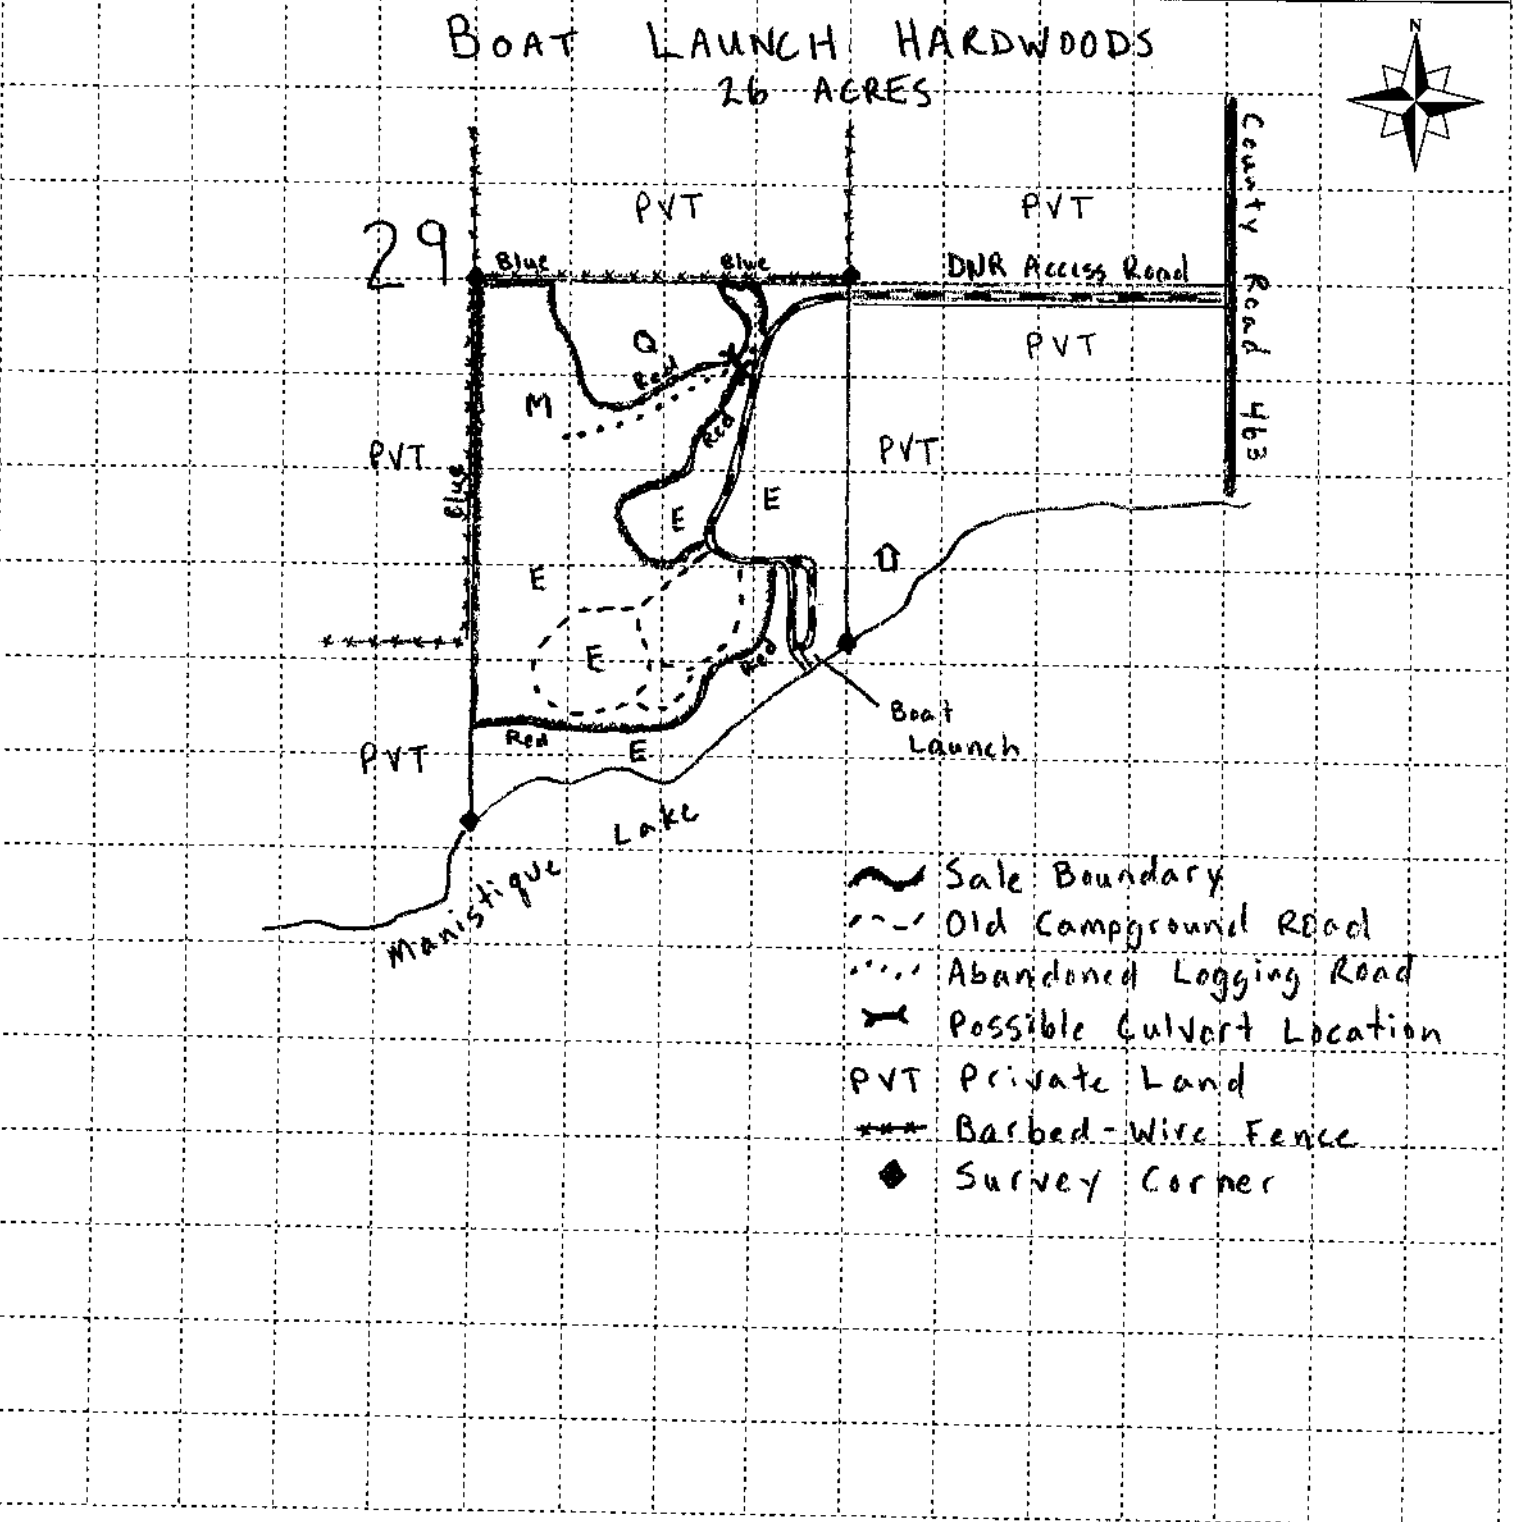 BOAT LAUNCH HARDWOODS
26 ACRES
N
County Road 463
PVT
PVT
29
Blue
Blue
DNR Access Road
Q
Red
PVT
M
Red
PVT
PVT
Blue
E
E
E
E
Red
Boat
Launch
Red
E
PVT
Manistique Lake
Sale Boundary
Old Campground Road
Abandoned Logging Road
Possible Culvert Location
PVT Private Land
Barbed-Wire Fence
Survey Corner